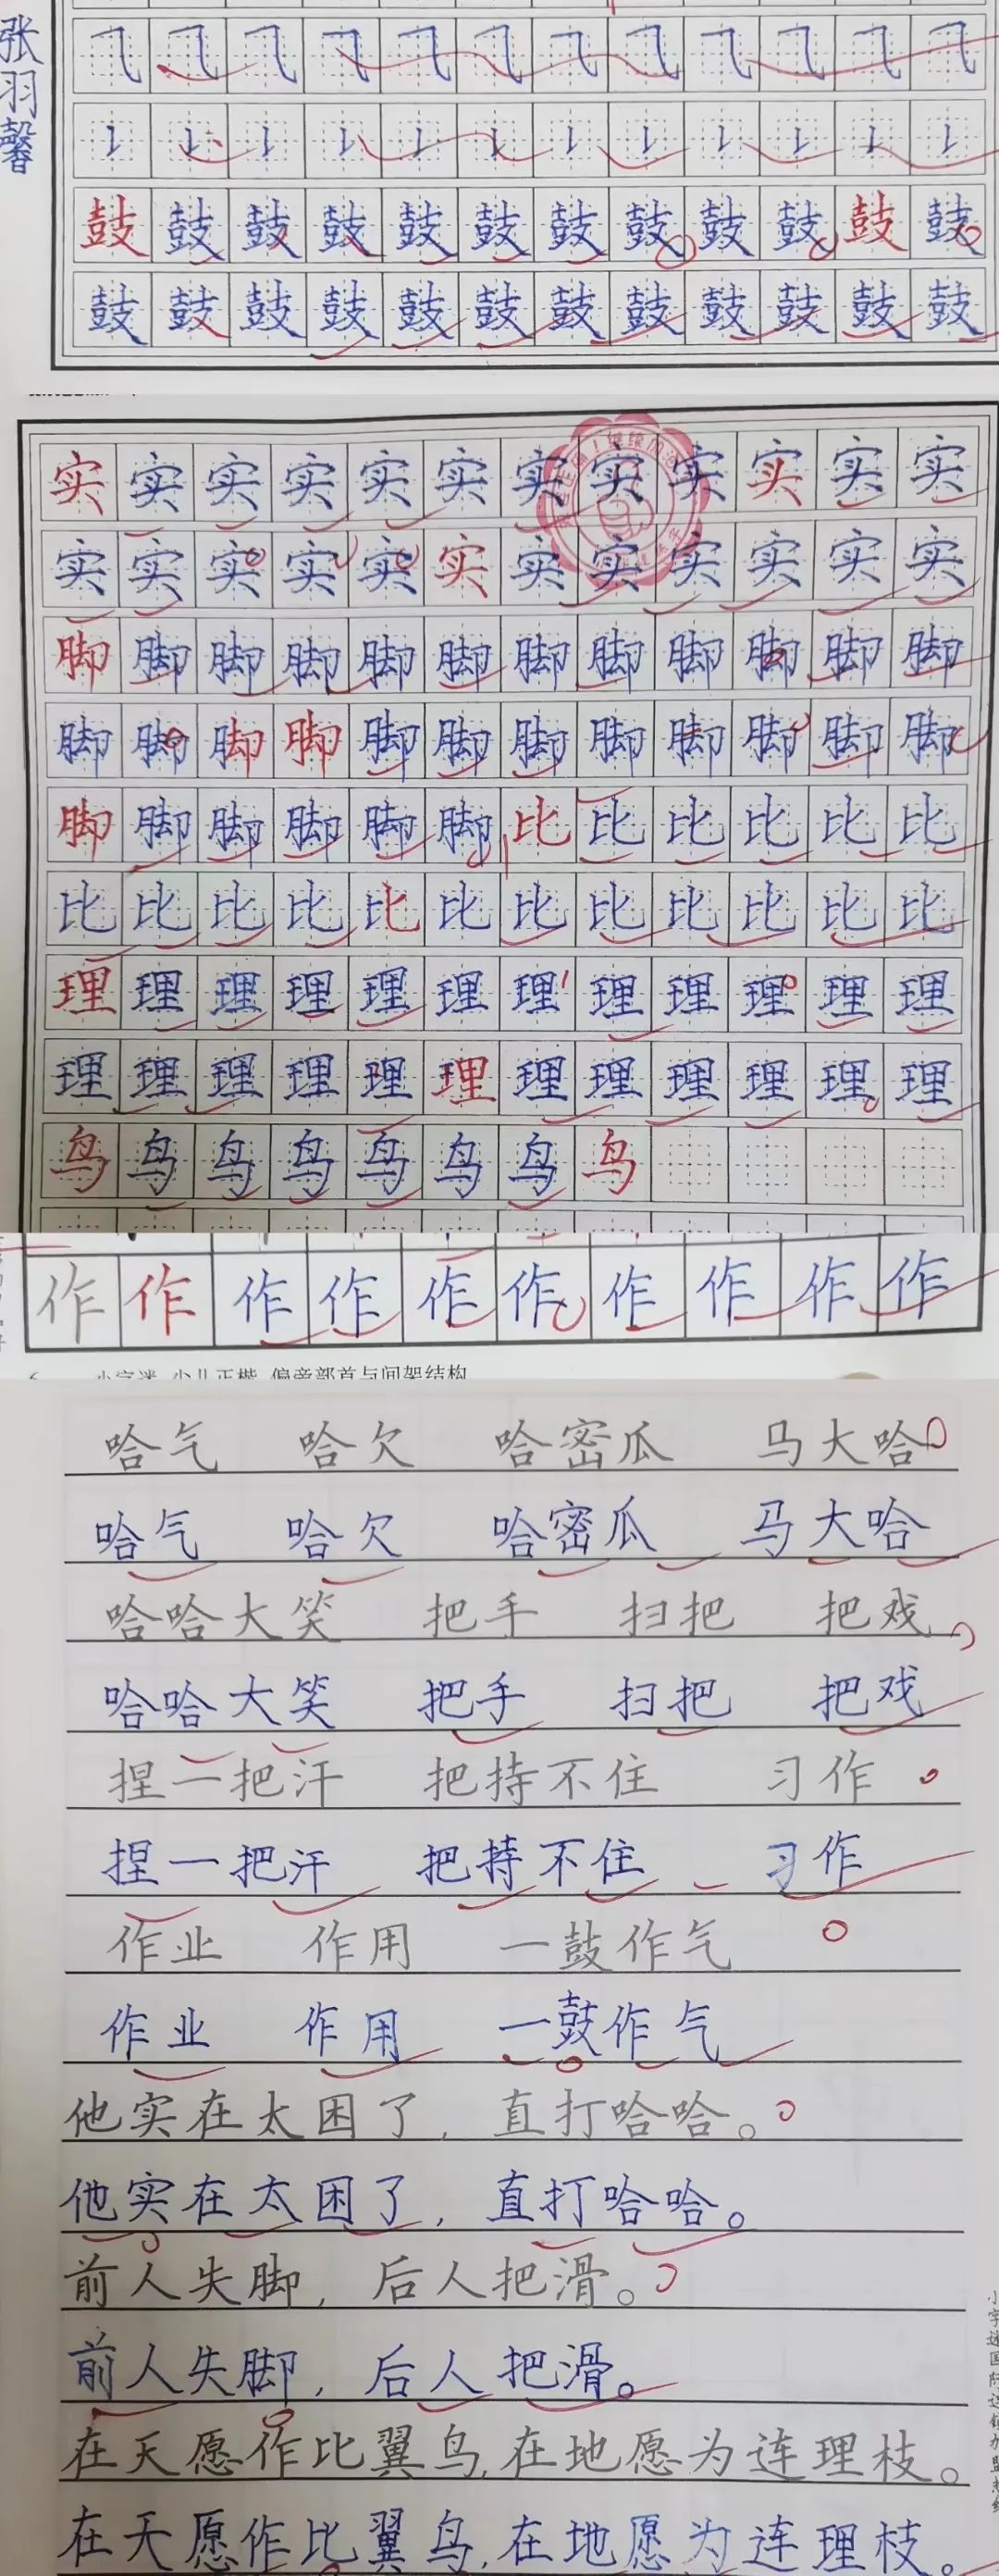 张羽馨
鼓鼓鼓鼓鼓鼓鼓鼓鼓鼓鼓鼓
鼓鼓鼓鼓鼓鼓鼓鼓鼓鼓鼓鼓
实实实实实实实实实实实实
实实实实实实实实实实实实
脚脚脚脚脚脚脚脚脚脚脚脚
脚脚脚脚脚脚脚脚脚脚脚脚
脚脚脚脚脚脚比比比比比比
比比比比比比比比比比比比
理理理理理理理理理理理理
理理理理理理理理理理理理
鸟鸟鸟鸟鸟鸟鸟鸟
作作作作作作作作作作
6 小字迷 少儿正楷 偏旁部首与间架结构
哈气 哈欠 哈密瓜 马大哈
哈气 哈欠 哈密瓜 马大哈
哈哈大笑 把手 扫把 把戏
哈哈大笑 把手 扫把 把戏
捏一把汗 把持不住 习作
捏一把汗 把持不住 习作
作业 作用 一鼓作气
作业 作用 一鼓作气
他实在太困了，直打哈哈。
他实在太困了，直打哈哈。
前人失脚，后人把滑。
前人失脚，后人把滑。
在天愿作比翼鸟,在地愿为连理枝。
在天愿作比翼鸟,在地愿为连理枝。